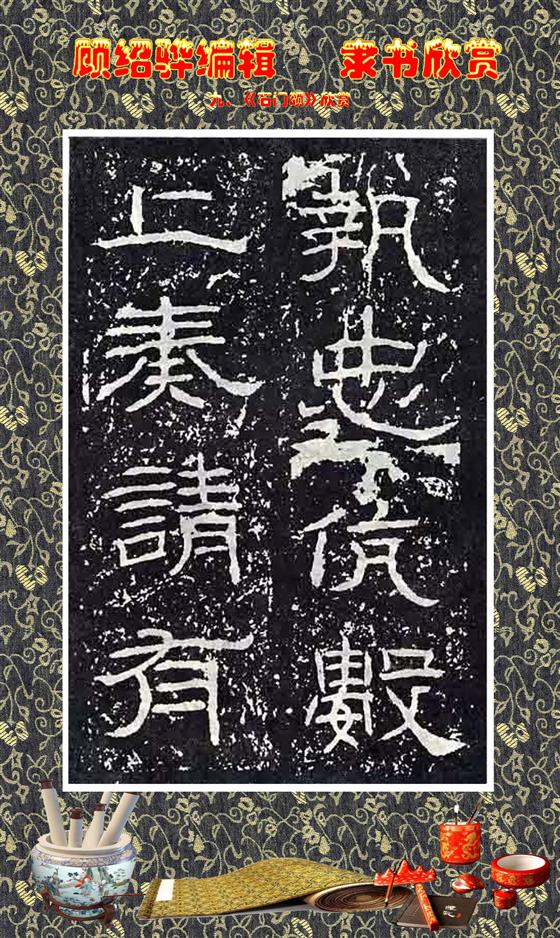 顾绍骅编辑 隶书欣赏
九、《石门颂》欣赏
執忠伉數
上奏請有